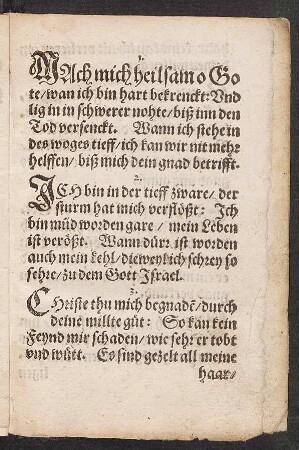 1.
MAch mich heilsam o Go
te/wan ich bin hart bekrenckt: Vnd
lig in in schwerer nohte/ biß inn den
Tod versenckt. Wann ich stehe in
des woges tieff/ ich kan mir nit mehr
helffen/ biß mich dein gnad betrifft.
2.
ICH bin in der tieff zware/ der
sturm hat mich verflößt: Ich
bin müd worden gare/ mein Leben
ist verößt. Wann dürr ist worden
auch mein kehl/ dieweyl ich schrey so
sehre/ zu dem Gott Israel.
3.
CHriste thu mich begnadẽ/ durch
deine millte güt: So kan kein
Feynd mir schaden/ wie sehr er tobt
vnd wütt. Es sind gezelt all meine
haar/